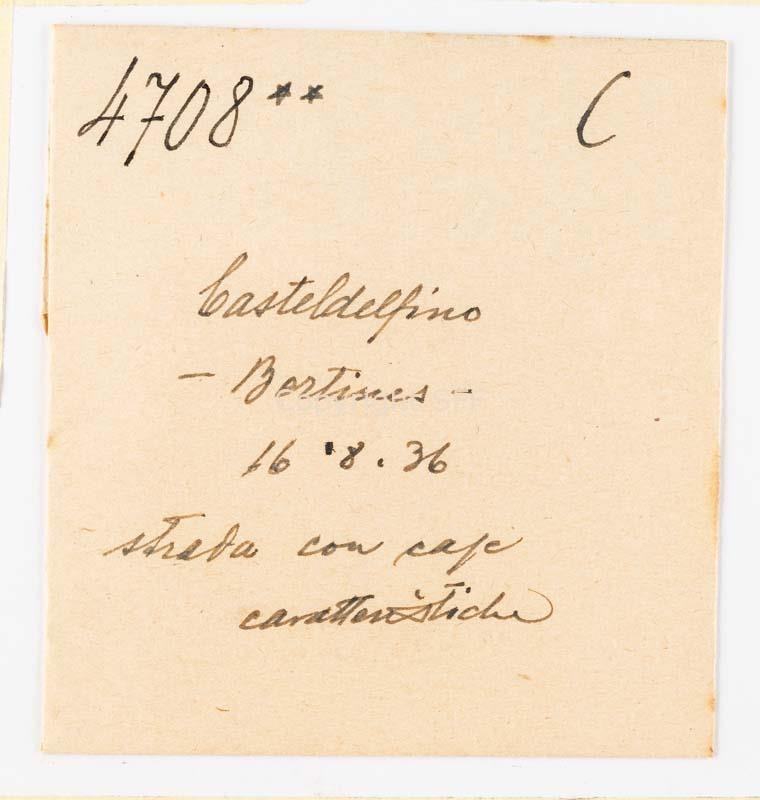 4708** C
Casteldelfino
- Bertines -
16.8.36
strada con case
caratteristiche